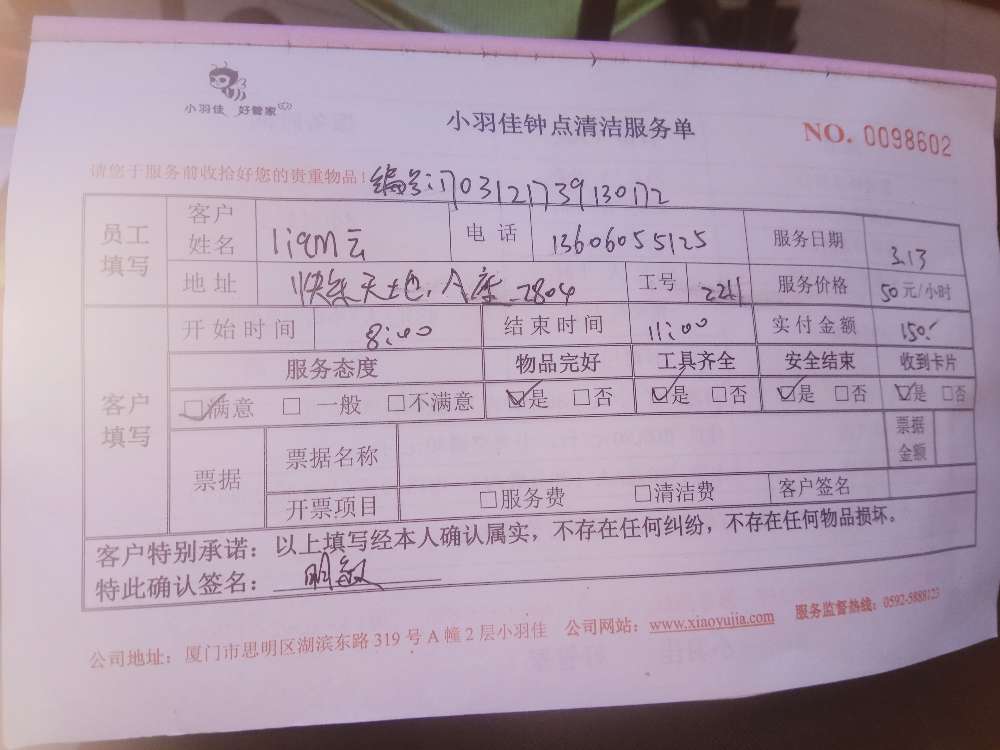 小羽佳 好管家
小羽佳钟点清洁服务单
NO. 0098602
请您于服务前收拾好您的贵重物品!
编号:1703121739130172
员工填写
客户姓名 liqm云 电话 13606055125 服务日期 3.13
地址 快乐天地,A座-2804 工号 2211 服务价格 50元/小时
客户填写
开始时间 8:00 结束时间 11:00 实付金额 150
服务态度 物品完好 工具齐全 安全结束 收到卡片
☑满意 □一般 □不满意 ☑是 □否 ☑是 □否 ☑是 □否 ☑是 □否
票据 票据名称 票据金额
开票项目 □服务费 □清洁费 客户签名
客户特别承诺:以上填写经本人确认属实,不存在任何纠纷,不存在任何物品损坏。
特此确认签名:明敏
公司地址:厦门市思明区湖滨东路 319 号 A 幢 2 层小羽佳 公司网站:www.xiaoyujia.com 服务监督热线:0592-5888123